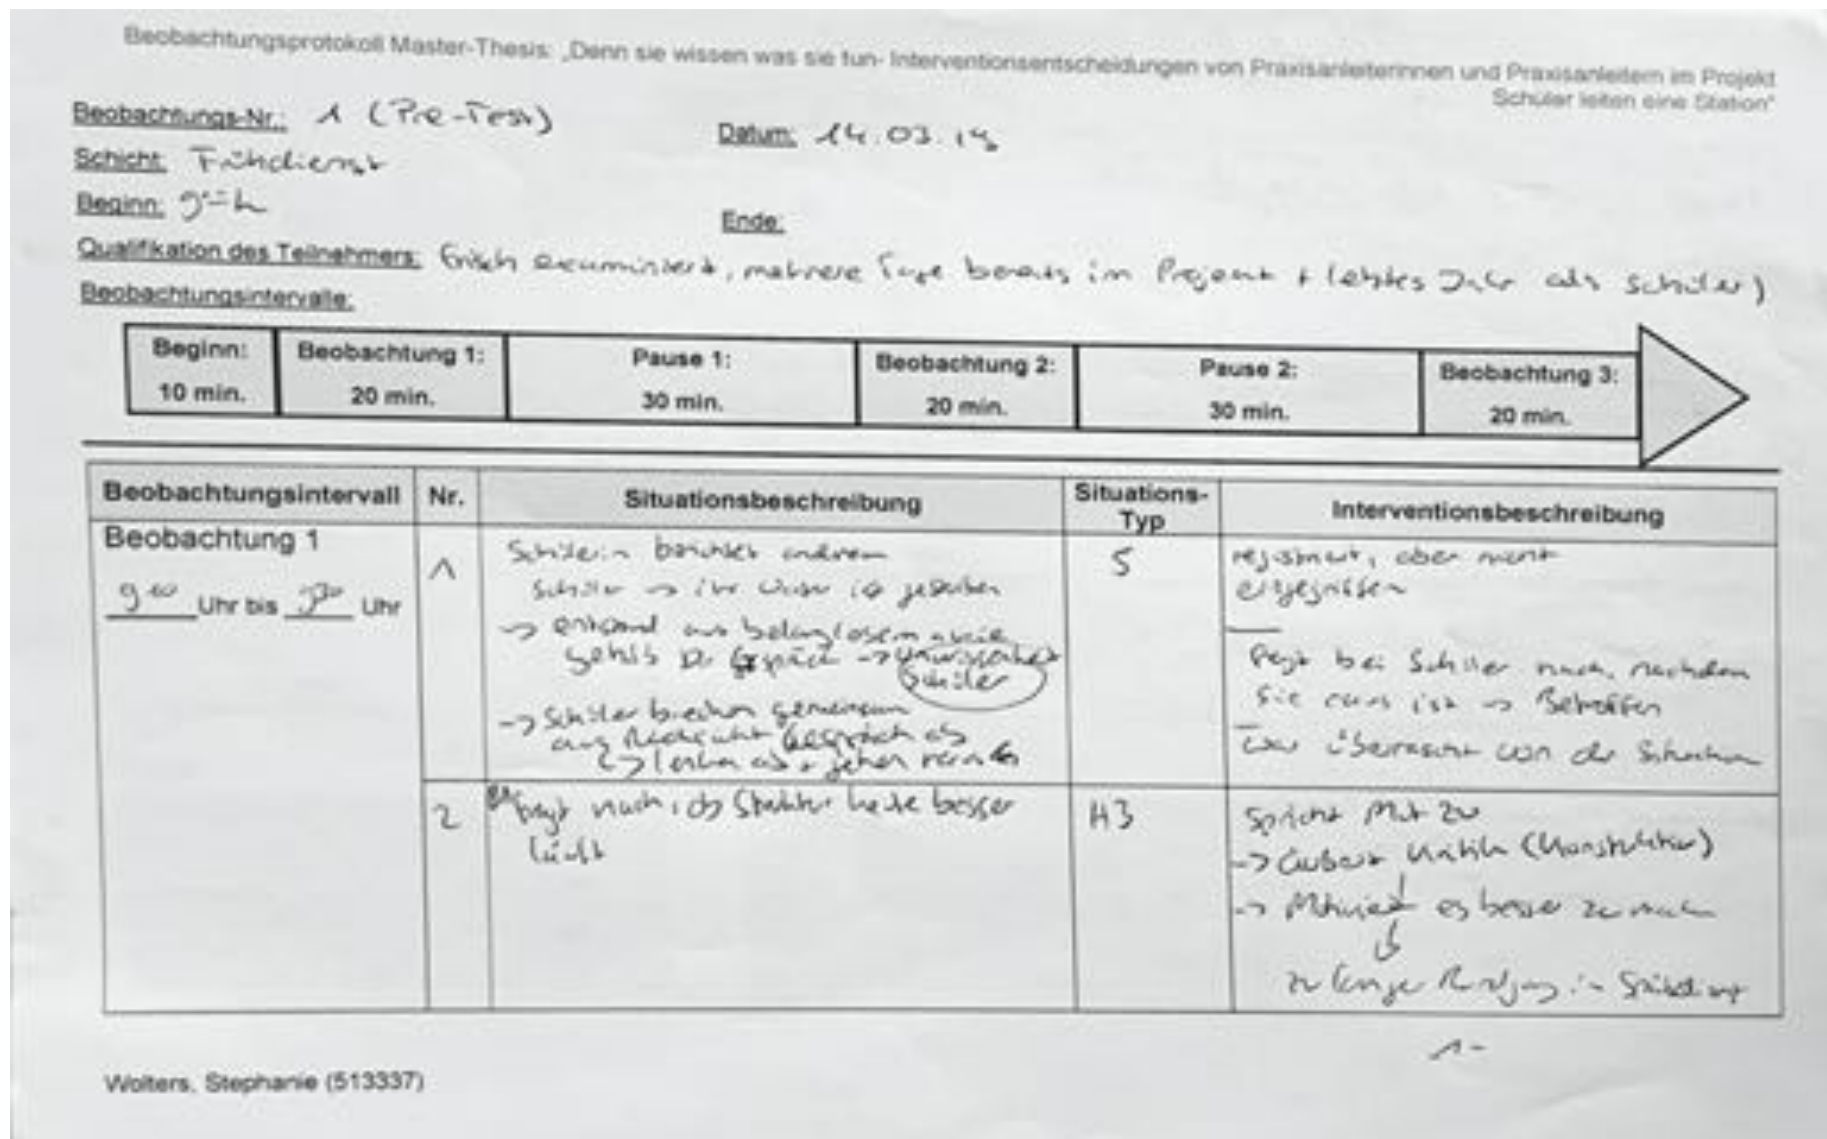 Beobachtungsprotokoll Master-Thesis: „Denn sie wissen was sie tun- Interventionsentscheidungen von Praxisanleiterinnen und Praxisanleitern im Projekt
Schüler leiten eine Station"
Beobachtungs-Nr.: 1 (Pre-Test)
Datum: 14.03.
Schicht: Frühdienst
Beginn:
Ende:
Qualifikation des Teilnehmers: frisch examiniert, mehrere Tage bereits im Projekt + letztes Jahr als Schüler)
Beobachtungsintervalle:
Beginn: Beobachtung 1: Pause 1: Beobachtung 2: Pause 2: Beobachtung 3:
10 min. 20 min. 30 min. 20 min. 30 min. 20 min.
Beobachtungsintervall Nr. Situationsbeschreibung Situations-Typ Interventionsbeschreibung
Beobachtung 1
9 00 Uhr bis Uhr
1
Schülerin berichtet anderem
Schüler -> ihr ist gestorben
-> entstand aus belanglosem
Gespräch ->
Schüler
-> Schüler brechen gemeinsam
aus Rücksicht Gespräch ab
-> lenken ab + gehen
5
registriert, aber nicht
eingegriffen
fragt bei Schüler nach, nachdem
sie raus ist -> Betroffen
war überrascht von der Situation
2
fragt nach, ob Struktur heute besser
läuft
H3
Spricht Mut zu
-> äußert Kritik (Konstruktiv)
-> Motiviert es besser zu machen
zu langer Rundgang in Spätdienst
1-
Wolters, Stephanie (513337)